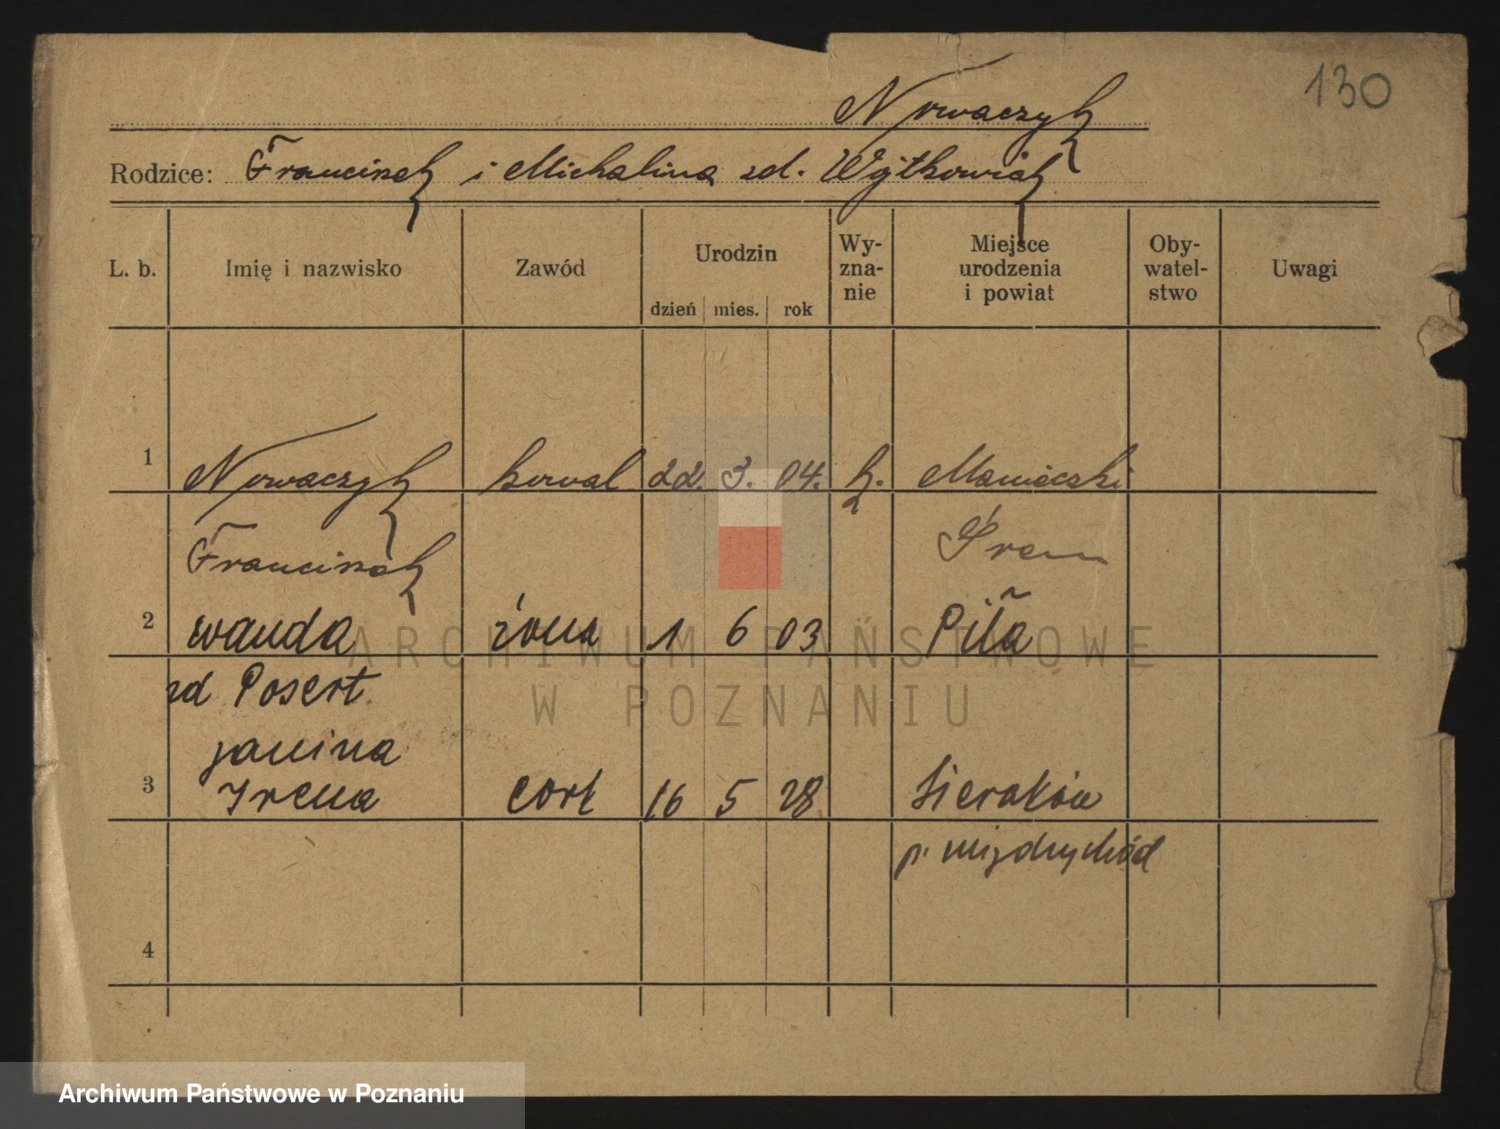 130
Nowaczyk
Rodzice: Franciszek i Michalina zd. Wojtkowiak
L. b. Imię i nazwisko Zawód Urodzin dzień mies. rok Wy-zna-nie Miejsce urodzenia i powiat Oby-watel-stwo Uwagi
1 Nowaczyk kowal 22. 3. 04. k. Manieczki
Franciszek Śrem
2 Wanda żona 1 6 03 Piła
zd Posert
Janina
3 Irena cork 16 5 28 Sieraków
p. Międzychód
4
ARCHIWUM PAŃSTWOWE
W POZNANIU
Archiwum Państwowe w Poznaniu